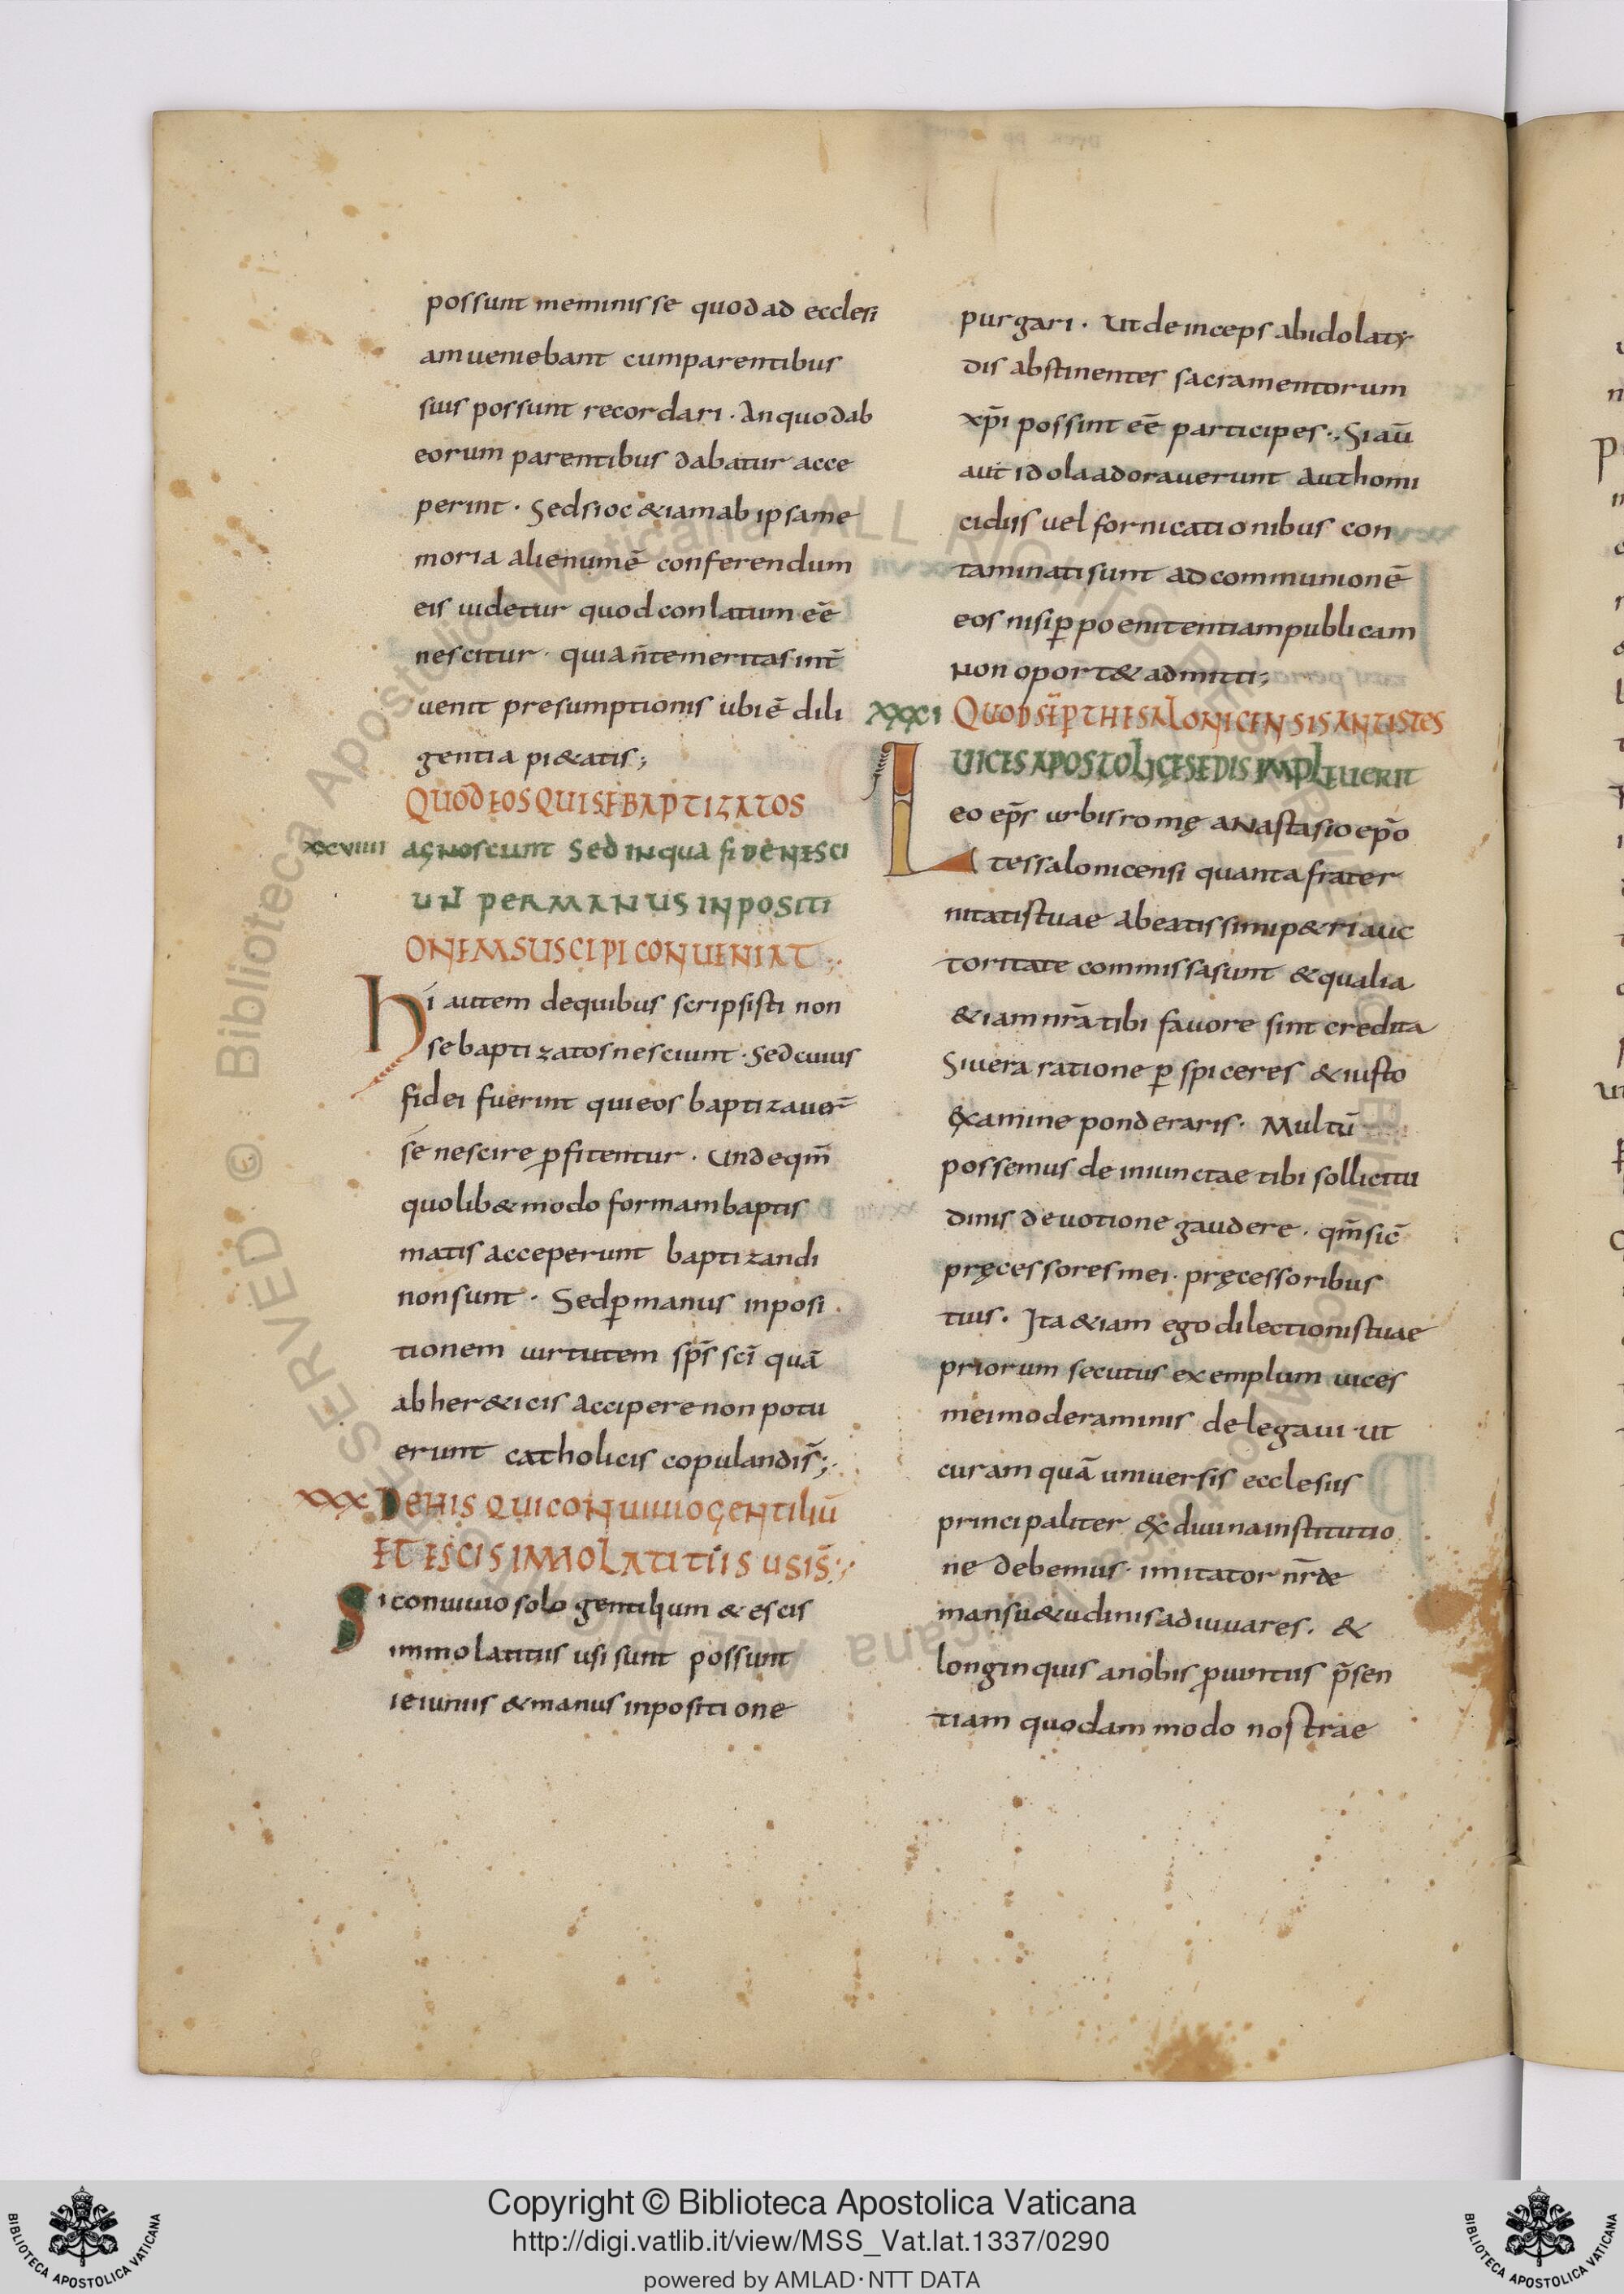 possunt meminisse quod ad ecclesi
am ueniebant cum parentibus
suis possunt recordari · An quod ab
eorum parentibus dabatur acce
perint · Sed si oc &iam ab ipsa me
moria alienum ē conferendum
eis uidetur quod conlatum eē
nescitur · quia ñ temeritas int̄
uenit presumptionis ubi ē dili
gentia pi&atis;
QUOD EOS QUI SE BAPTIZATOS
XXVIIII AGNOSCUNT SED IN QUA FIDE NESCI
UN PER MANUS INPOSITI
ONEM SUSCIPI CONUENIAT;
Hi autem de quibus scripsisti non
se baptizatos nesciunt · Sed cuius
fidei fuerint qui eos baptizauer̄
se nescire ꝓfitentur · Unde qm̄
quolib& modo formam baptis
matis acceperunt baptizandi
non sunt · Sed ꝑ manus inposi
tionem uirtutem sp̄s sc̄i quā
ab her&icis accipere non potu
erunt catholicis copulandis̄;
XXX DE HIS QUI CONUIUIO GENTILIŪ
ET ESCIS IMMOLATITIIS USIS̄;
Si conuiuio solo gentilium & escis
immolatitiis usi sunt possunt
ieiuniis & manus inpositione
purgari · Ut deinceps ab idolaty
dis abstinentes sacramentorum
xp̄i possint eē participes · Si aū
aut idola adorauerunt aut homi
cidiis uel fornicationibus con
taminati sunt ad communionē
eos nisi ꝑ poenitentiam publicam
non oport& admitti;
XXXI QUOD SĒP THESALONICENSIS ANTISTES
UICES APOSTOLICĘ SEDIS IMPLEUERIT
Leo ep̄s urbis romę anastasio ep̄o
tessalonicensi quanta frater
nitatis tuae a beatissimi p&ri auc
toritate commissa sunt & qualia
&iam nr̄a tibi fauore sint credita
Si uera ratione ꝑspiceres & iusto
examine ponderaris · Multū
possemus de iniunctae tibi sollicitu
dinis deuotione gaudere · qm̄ sic̄
pręcessores mei · pręcessoribus
tuis · Ita &iam ego dilectionis tuae
priorum secutus exemplum uices
mei moderaminis delegaui · ut
curam quā uniuersis ecclesiis
principaliter ex diuina institutio
ne debemus · imitator nr̄ae
mansu&udinis adiuuares · &
longinquis a nobis ꝓuintiis p̄sen
tiam quodam modo nostrae
Copyright © Biblioteca Apostolica Vaticana
http://digi.vatlib.it/view/MSS_Vat.lat.1337/0290
powered by AMLAD·NTT DATA
BIBLIOTECA APOSTOLICA VATICANA
BIBLIOTECA APOSTOLICA VATICANA